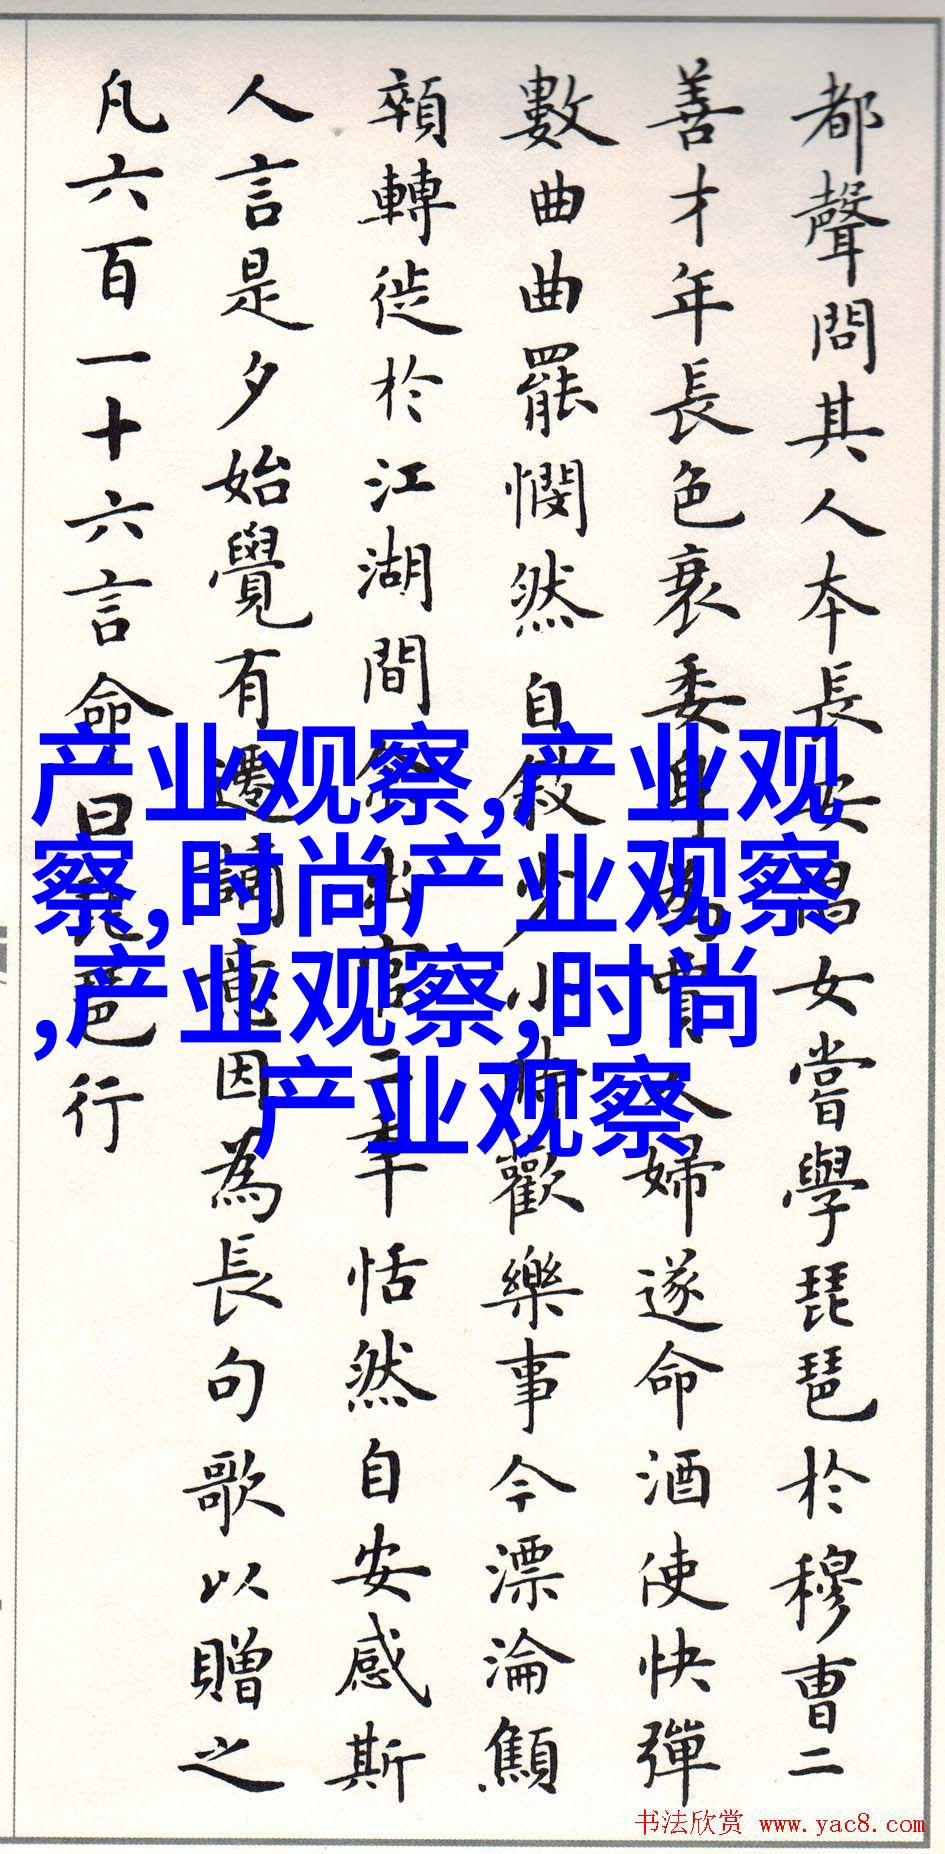 都聲問其人本長安倡女嘗學琵琶於穆曹二
善才年長色衰委身為賈人婦遂命酒使快彈
數曲曲罷憫然自敘少小時歡樂事今漂淪顦
顇轉徙於江湖間余出官二年恬然自安感斯
人言是夕始覺有遷謫意因為長句歌以贈之
凡六百一十六言命曰琵琶行
产业观察,产业观
察,时尚产业观察
,产业观察,时尚
产业观察
书法欣赏 www.yac8.com